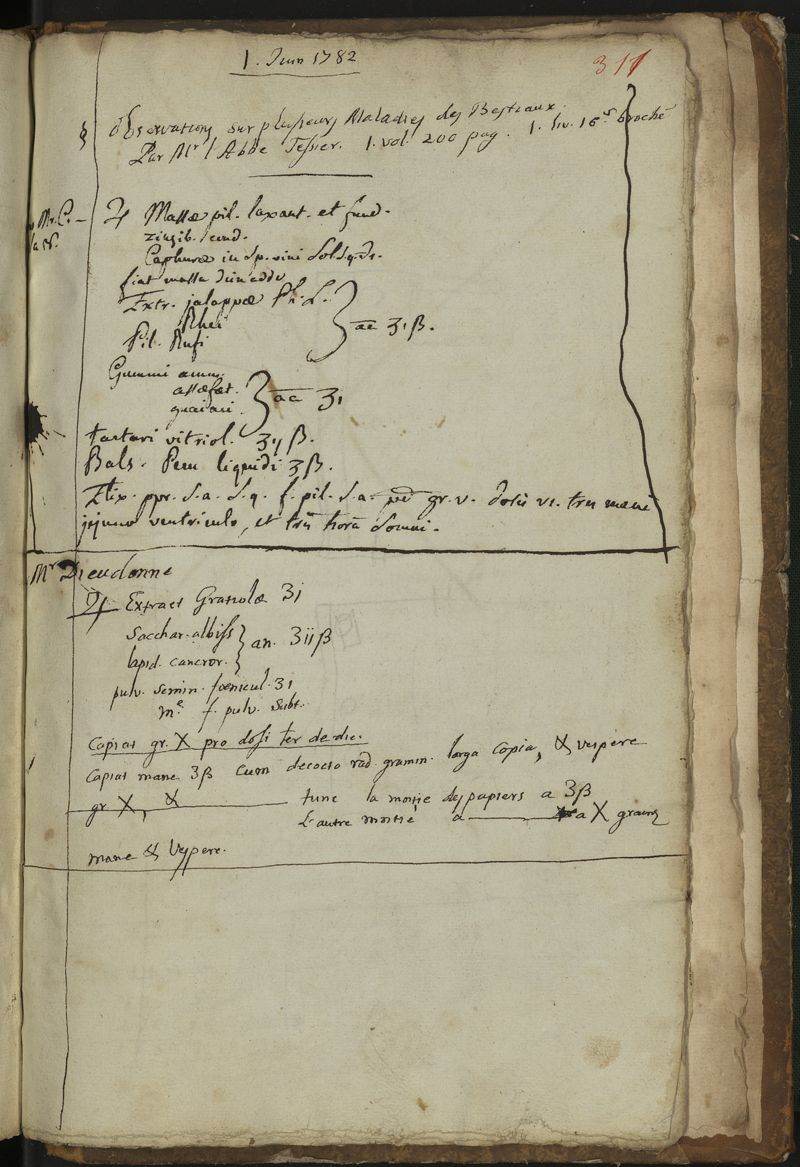 1. Juin 1782
311
§ Observations sur plusieurs Maladies des Bestiaux.
Par Mr l'Abbé Tessier. 1. vol. 200 pag. 1. liv. 16 s broché
Mr. C. — ♃ Massæ pil. laxant. et fund.
zingib. cond.
Camphuræ in sp. vini sol. s. q. ds.
fiat massa dein adde
Extr. jalappæ Ph. L.
Rhei
Pil. Rufi } aa ʒı ß.
Gummi amm.
assæfœt.
guaiaci } aa ʒı
tartari vitriol. ʒıȷ ß.
Bals. Peru liquidi ʒß.
Elix. ppr. s. a. s. q. f. pil. s. a. gr. v. dosis vi. tres mane
jejuno ventriculo, et tres hora somni.
Mr Dieudonne
♃ Extract Gratiolæ ʒı
Sacchar. albiss
lapid. cancror. } an. ʒıı ß
pulv. semin. fœnicul. ʒı
m.e f. pulv. subt.
Capiat gr. X pro dosi ter de die.
Capiat mane ʒß cum decocto rad. gramin. larga copia, & vespere
gr X, & tunc la moitie des papiers a ʒß
L'autre moitié a a X grains
mane & vespere.